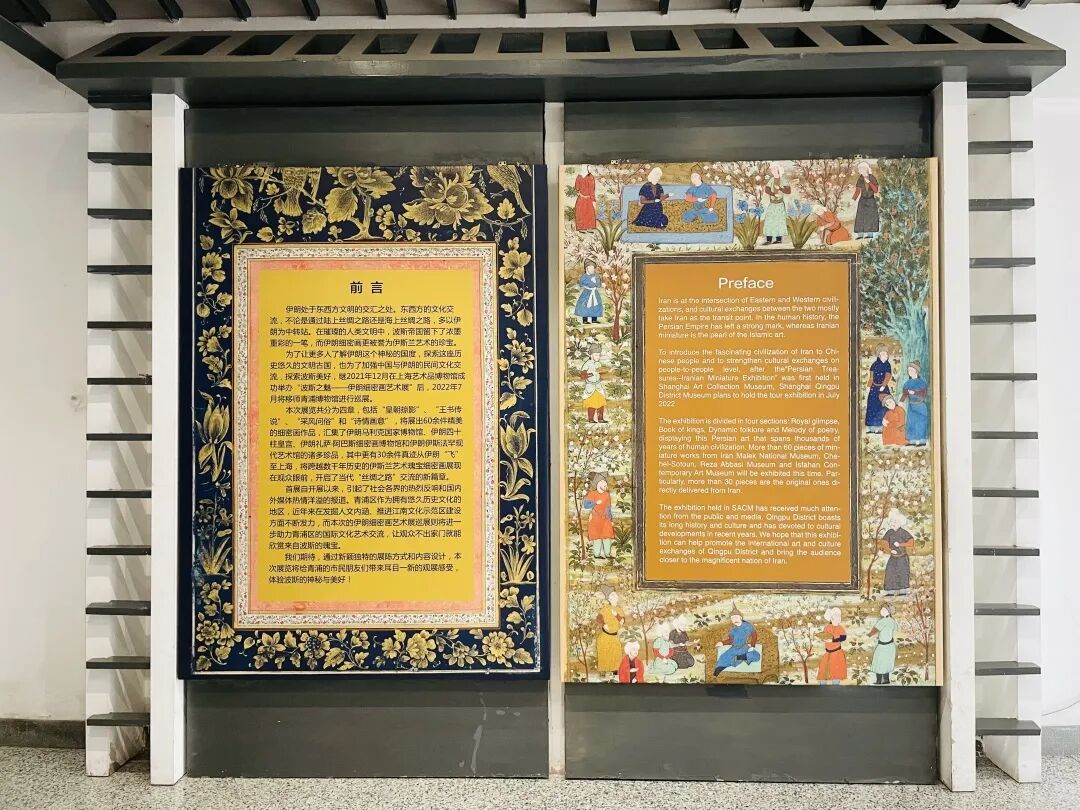 前言
伊朗处于东西方文明的交汇之处。东西方的文化交
流，不论是通过陆上丝绸之路还是海上丝绸之路，多以伊
朗为中转站。在璀璨的人类文明中，波斯帝国留下了浓墨
重彩的一笔，而伊朗细密画更被誉为伊斯兰艺术的珍宝。
为了让更多人了解伊朗这个神秘的国度，探索这座历
史悠久的文明古国，也为了加强中国与伊朗的民间文化交
流，探索波斯美好，继2021年12月在上海艺术品博物馆成
功举办“波斯之魅——伊朗细密画艺术展”后，2022年7
月将移师青浦博物馆进行巡展。
本次展览共分为四章，包括“皇朝掠影”、“王书传
说”、“采风问俗”和“诗情画意”，将展出60余件精美
的细密画作品，汇集了伊朗马利克国家博物馆、伊朗四十
柱皇宫、伊朗礼萨·阿巴斯细密画博物馆和伊朗伊斯法罕现
代艺术馆的诸多珍品，其中更有30余件真迹从伊朗“飞”
至上海，将跨越数千年历史的伊斯兰艺术瑰宝细密画展现
在观众眼前，开启了当代“丝绸之路”交流的新篇章。
首展自开展以来，引起了社会各界的热烈反响和国内
外媒体热情洋溢的报道。青浦区作为拥有悠久历史文化的
地区，近年来在发掘人文内涵、推进江南文化示范区建设
方面不断发力，而本次的伊朗细密画艺术展巡展则将进一
步助力青浦区的国际文化艺术交流，让观众不出家门就能
欣赏来自波斯的瑰宝。
我们期待，通过新颖独特的展陈方式和内容设计，本
次展览将给青浦的市民朋友们带来耳目一新的观展感受，
体验波斯的神秘与美好！
Preface
Iran is at the intersection of Eastern and Western civili-
zations, and cultural exchanges between the two mostly
take Iran as the transit point. In the human history, the
Persian Empire has left a strong mark, whereas Iranian
miniature is the pearl of the Islamic art.
To introduce the fascinating civilization of Iran to Chi-
nese people and to strengthen cultural exchanges on
people-to-people level, after the"Persian Trea-
sures--Iranian Miniature Exhibition" was first held in
Shanghai Art Collection Museum, Shanghai Qingpu
District Museum plans to hold the tour exhibition in July
2022.
The exhibition is divided in four sections: Royal glimpse,
Book of kings, Dynamic folklore and Melody of poetry,
displaying this Persian art that spans thousands of
years of human civilization. More than 60 pieces of min-
iature works from Iran Malek National Museum, Che-
hel-Sotoun, Reza Abbasi Museum and Isfahan Con-
temporary Art Museum will be exhibited this time. Par-
ticularly, more than 30 pieces are the original ones di-
rectly delivered from Iran.
The exhibition held in SACM has received much atten-
tion from the public and media. Qingpu District boasts
its long history and culture and has devoted to cultural
developments in recent years. We hope that this exhibi-
tion can help promote the international art and culture
exchanges of Qingpu District and bring the audience
closer to the magnificent nation of Iran.